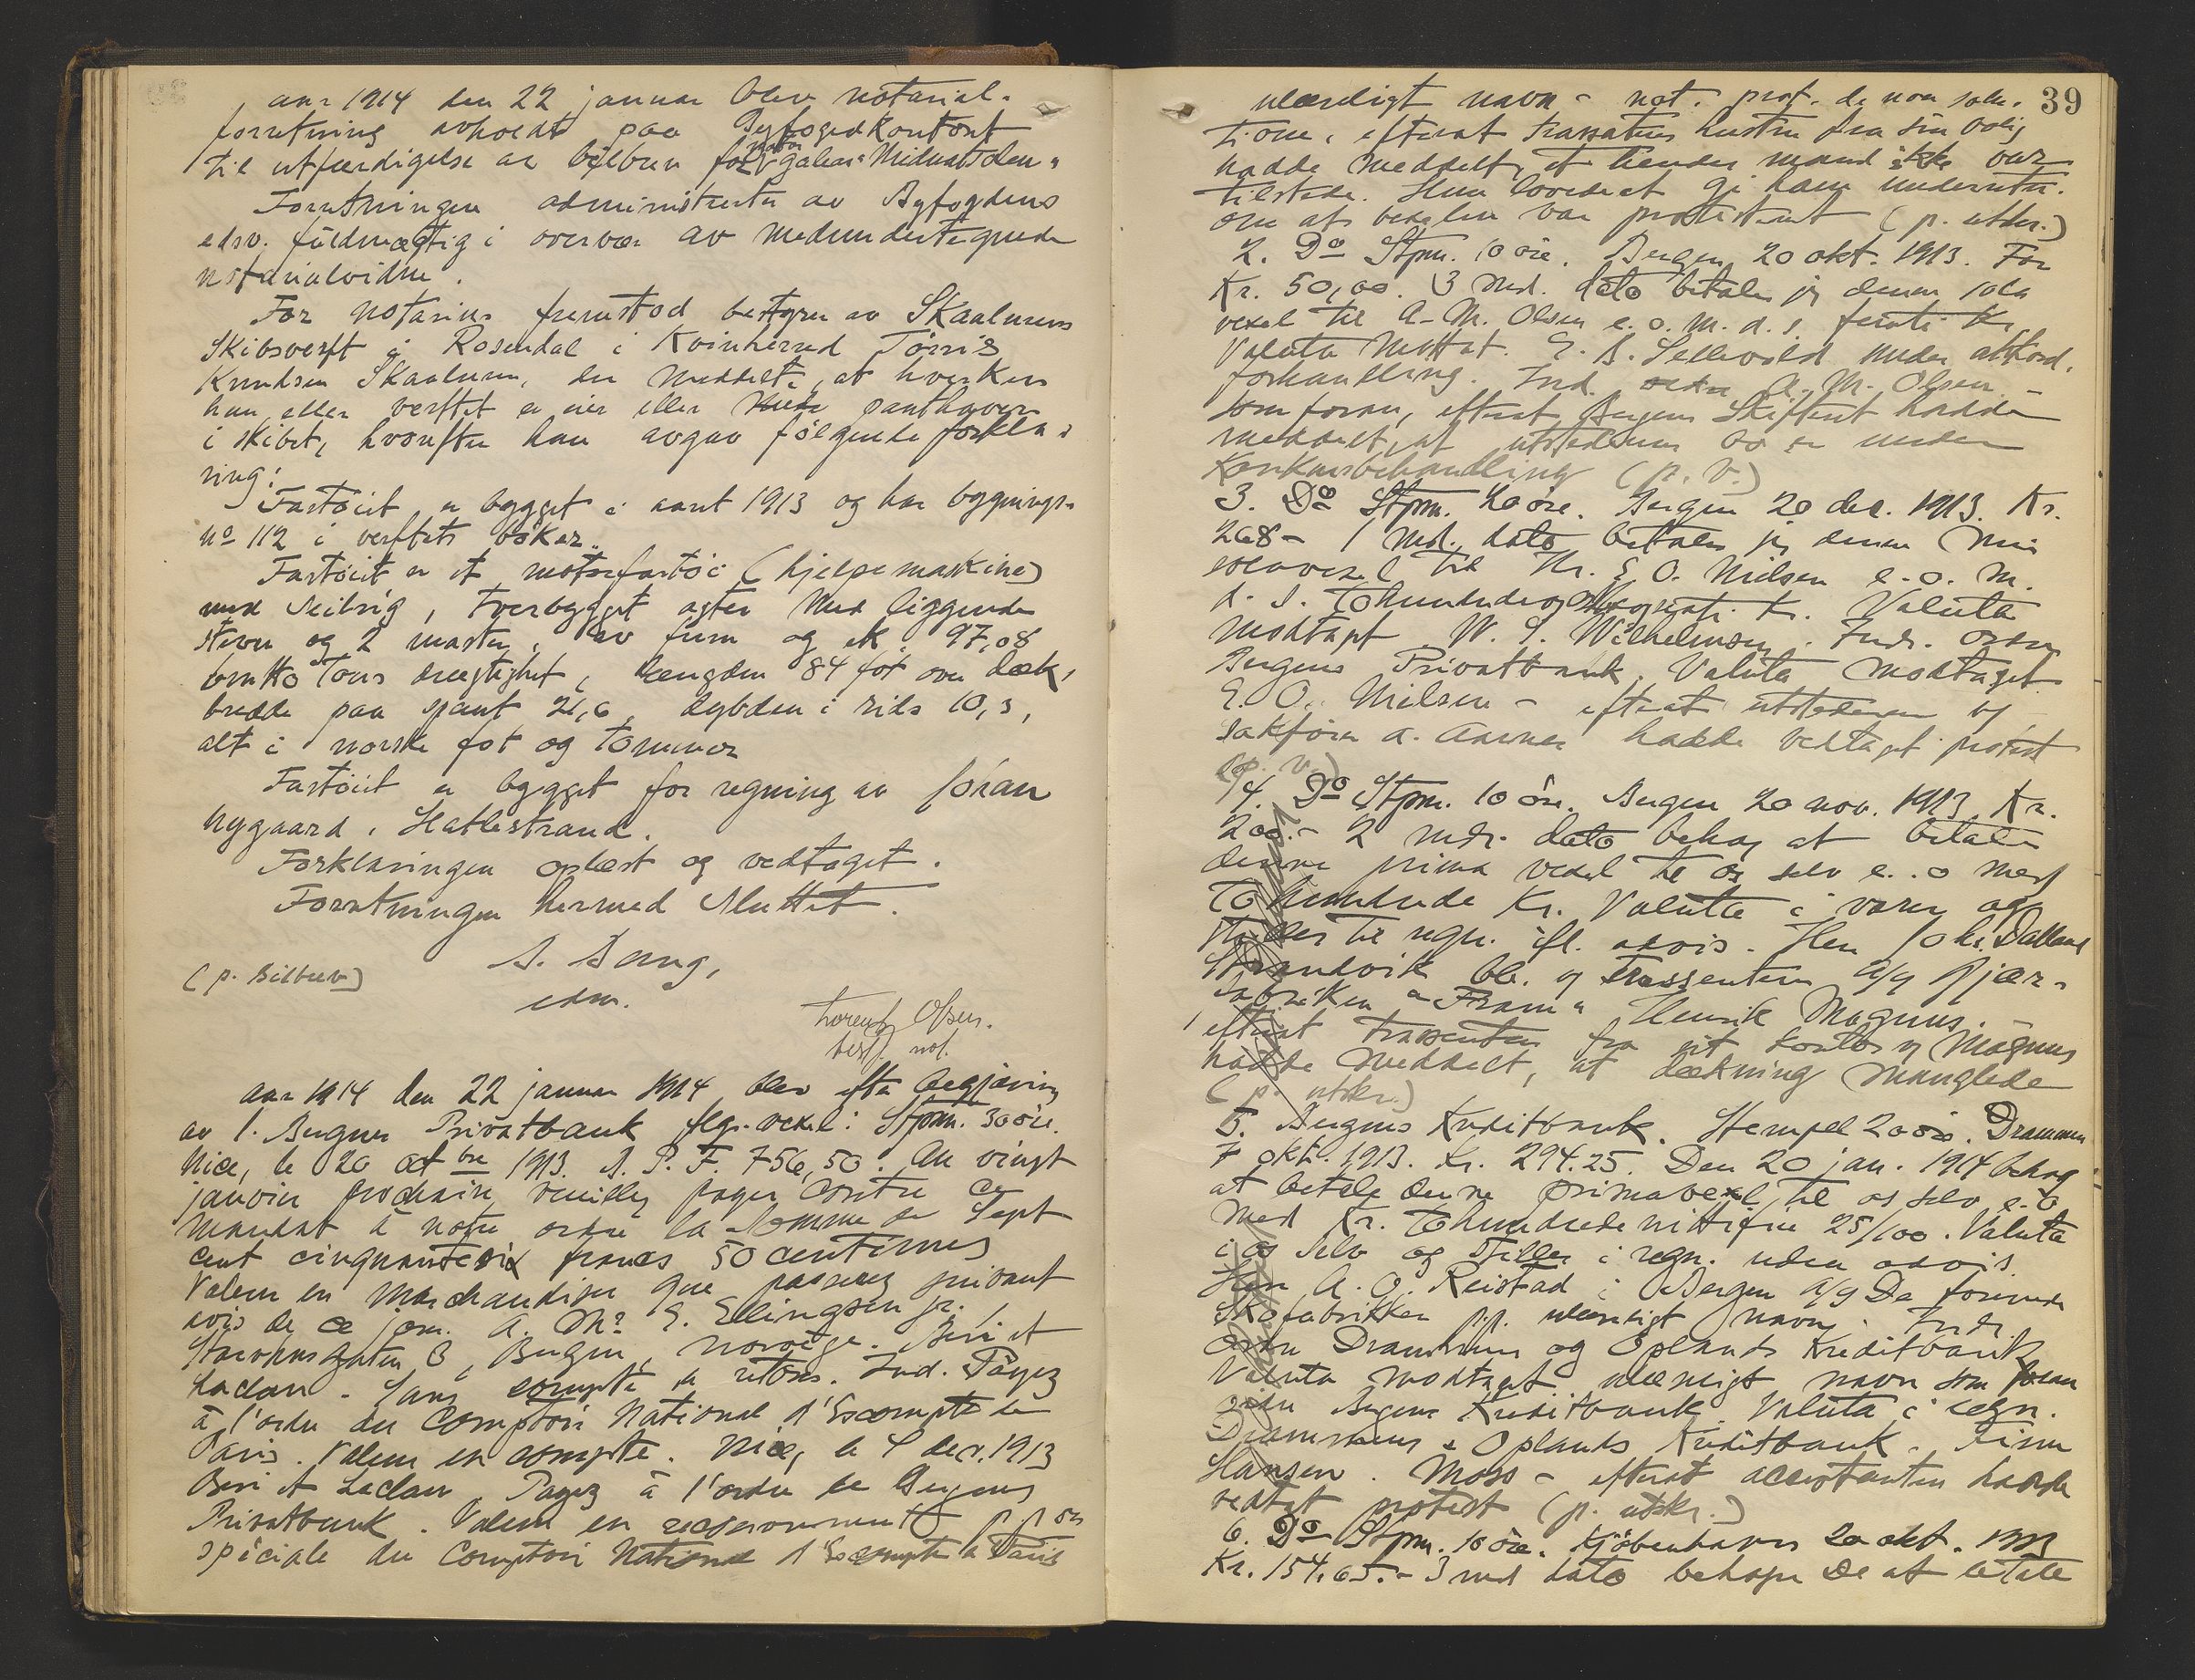 aar 1914 den 22 januar blev notarial-
forretning avholdt paa Byfogedkontoret
til utfærdigelse av bilbrev for motor galeas "Midnatsolen"
Forretningen administrertes av Byfogdens
edsv. fuldmægtig i overvær av medundertegnede
notarialvidne.
For notarius fremstod bestyrer av Skaalurens
Skibsverft i Rosendal i Kvinherred Tørris
Knudsen Skaaluren, der meddelte, at hverken
han eller verftet er eier eller panthaver
i skibet, hvorefter han avgav følgende forkla-
ring:
Fartøiet er bygget i aaret 1913 og har bygnings-
no 112 i verftets bøker.
Fartøiet er et motorfartøi (hjelpemaskine)
med seilrig, tverbygget agter med liggende
stevn og 2 master, av furu og ek. 97,08
brutto tons drægtighet, længden 84 fot over dæk,
bredde paa spant 21,6, dybden i rids 10,3,
alt i norske fot og tommer
Fartøiet er bygget for regning av Johan
Nygaard, Hatlestrand.
Forklaringen oplæst og vedtaget.
Forretningen hermed sluttet.
(p. Bilbrev)
edsv.
Olsen.
not.
aar 1914 den 22 januar 1914 blev efter begjæring
av 1. Bergens Privatbank flg. vexel: Stpm. 30 øre.
Nice, le 20 octbre 1913. B. P. F. 756,50. Au vingt
janvier prochain veuillez payer contre ce
mandat à notre ordre la somme de Sept
cent cinquante six francs 50 centimes
Valeur en marchandises que passerez suivant
avis de ce jour. A. Mr. E. Ellingsen jr.
Bergen, Norvège. Beri et
Leclau. Sans compte de retour. Ind. Payez
à l'ordre du Comptoir National d'Escompte de
Paris. Valeur en compte. Nice, le 4 dec. 1913
Beri et Leclau. Payez à l'ordre de Bergens
Privatbank. Valeur en recouvrement
spéciale du Comptoir National d'Escompte de Paris
39
ulæseligt navn - not. prot. de non solu-
tione, efterat trassatens hustru fra sin bolig
hadde meddelt, at hendes mand ikke var
tilstede. Hun lovede at gi ham underretn.
om at vexelen var protestert (p. utskr.)
2. Do Stpm. 10 øre. Bergen 20 okt. 1913. For
Kr. 50,00. 3 Md. dato betaler jeg denne sola
vexel til A. M. Olsen e. o. m. d. s. femti Kr.
Valuta mottat. E. B. Sellevold under akkord-
forhandling. Ind. A. M. Olsen -
som foran, efterat Bergens Skifteret hadde
meddelt, at utstederens bo er under
Konkursbehandling (p. v.)
3. Do Stpm. 20 øre. Bergen 20 dec. 1913. Kr.
268 - 1 Md. dato betaler jeg denne min
solavexel til Hr. E. O. Nielsen e. o. m.
d. s. tohundredeog Kr. Valuta
modtagt W. S. Wilhelmsen. Ind. ordre
Bergens Privatbank. Valuta modtaget
E. O. Nielsen - efterat utstederen v/
Sakfører A. Aarnes hadde vedtaget protest
(p. v.)
4. Do Stpm. 10 øre. Bergen 20 nov. 1913 Kr.
200.- 2 mdr. dato behag at betale
denne prima vexel til os selv e. o med
Tohundrede Kr. Valutta i varer og
stilles til regn. ifl. advis. Herr Johs. Dalland
Strandvik bl. og trassenten A/S Gjær-
fabriken "Fram" Henrik Magnus.
efterat trassenten fra sit kontor v/ Magnus
hadde meddelt, at dækning manglede
(p. utskr.)
5. Bergens Kreditbank. Stempel 20 øre. Drammen
7 okt. 1913. Kr. 294.25. Den 20 jan. 1914 behag
at betale denne primavexel til os selv e. o
med Kr. Tohundrede nittifire 25/100. Valuta
i os selv og stilles i regn. uden advis.
Herr A. O. Reistad i Bergen A/S De forenede
Skofabrikker p.p. ulæseligt navn. Indr.
ordre Drammens og Oplands Kreditbank
Valuta modtaget ulæseligt navn som foran
ordre Bergens Kreditbank. Valuta i regn.
Drammens & Oplands Kreditbank. Finn
Hansen. Moss - efterat acceptanten hadde
vedtat protest (p. utskr.)
6. Do Stpm. 10 øre. Kjøbenhavn 20 okt. 1913
Kr. 154.65.- 3 md dato behage De at betale